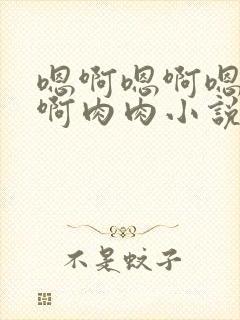 嗯啊嗯啊嗯
啊肉肉小说
不是蚊子